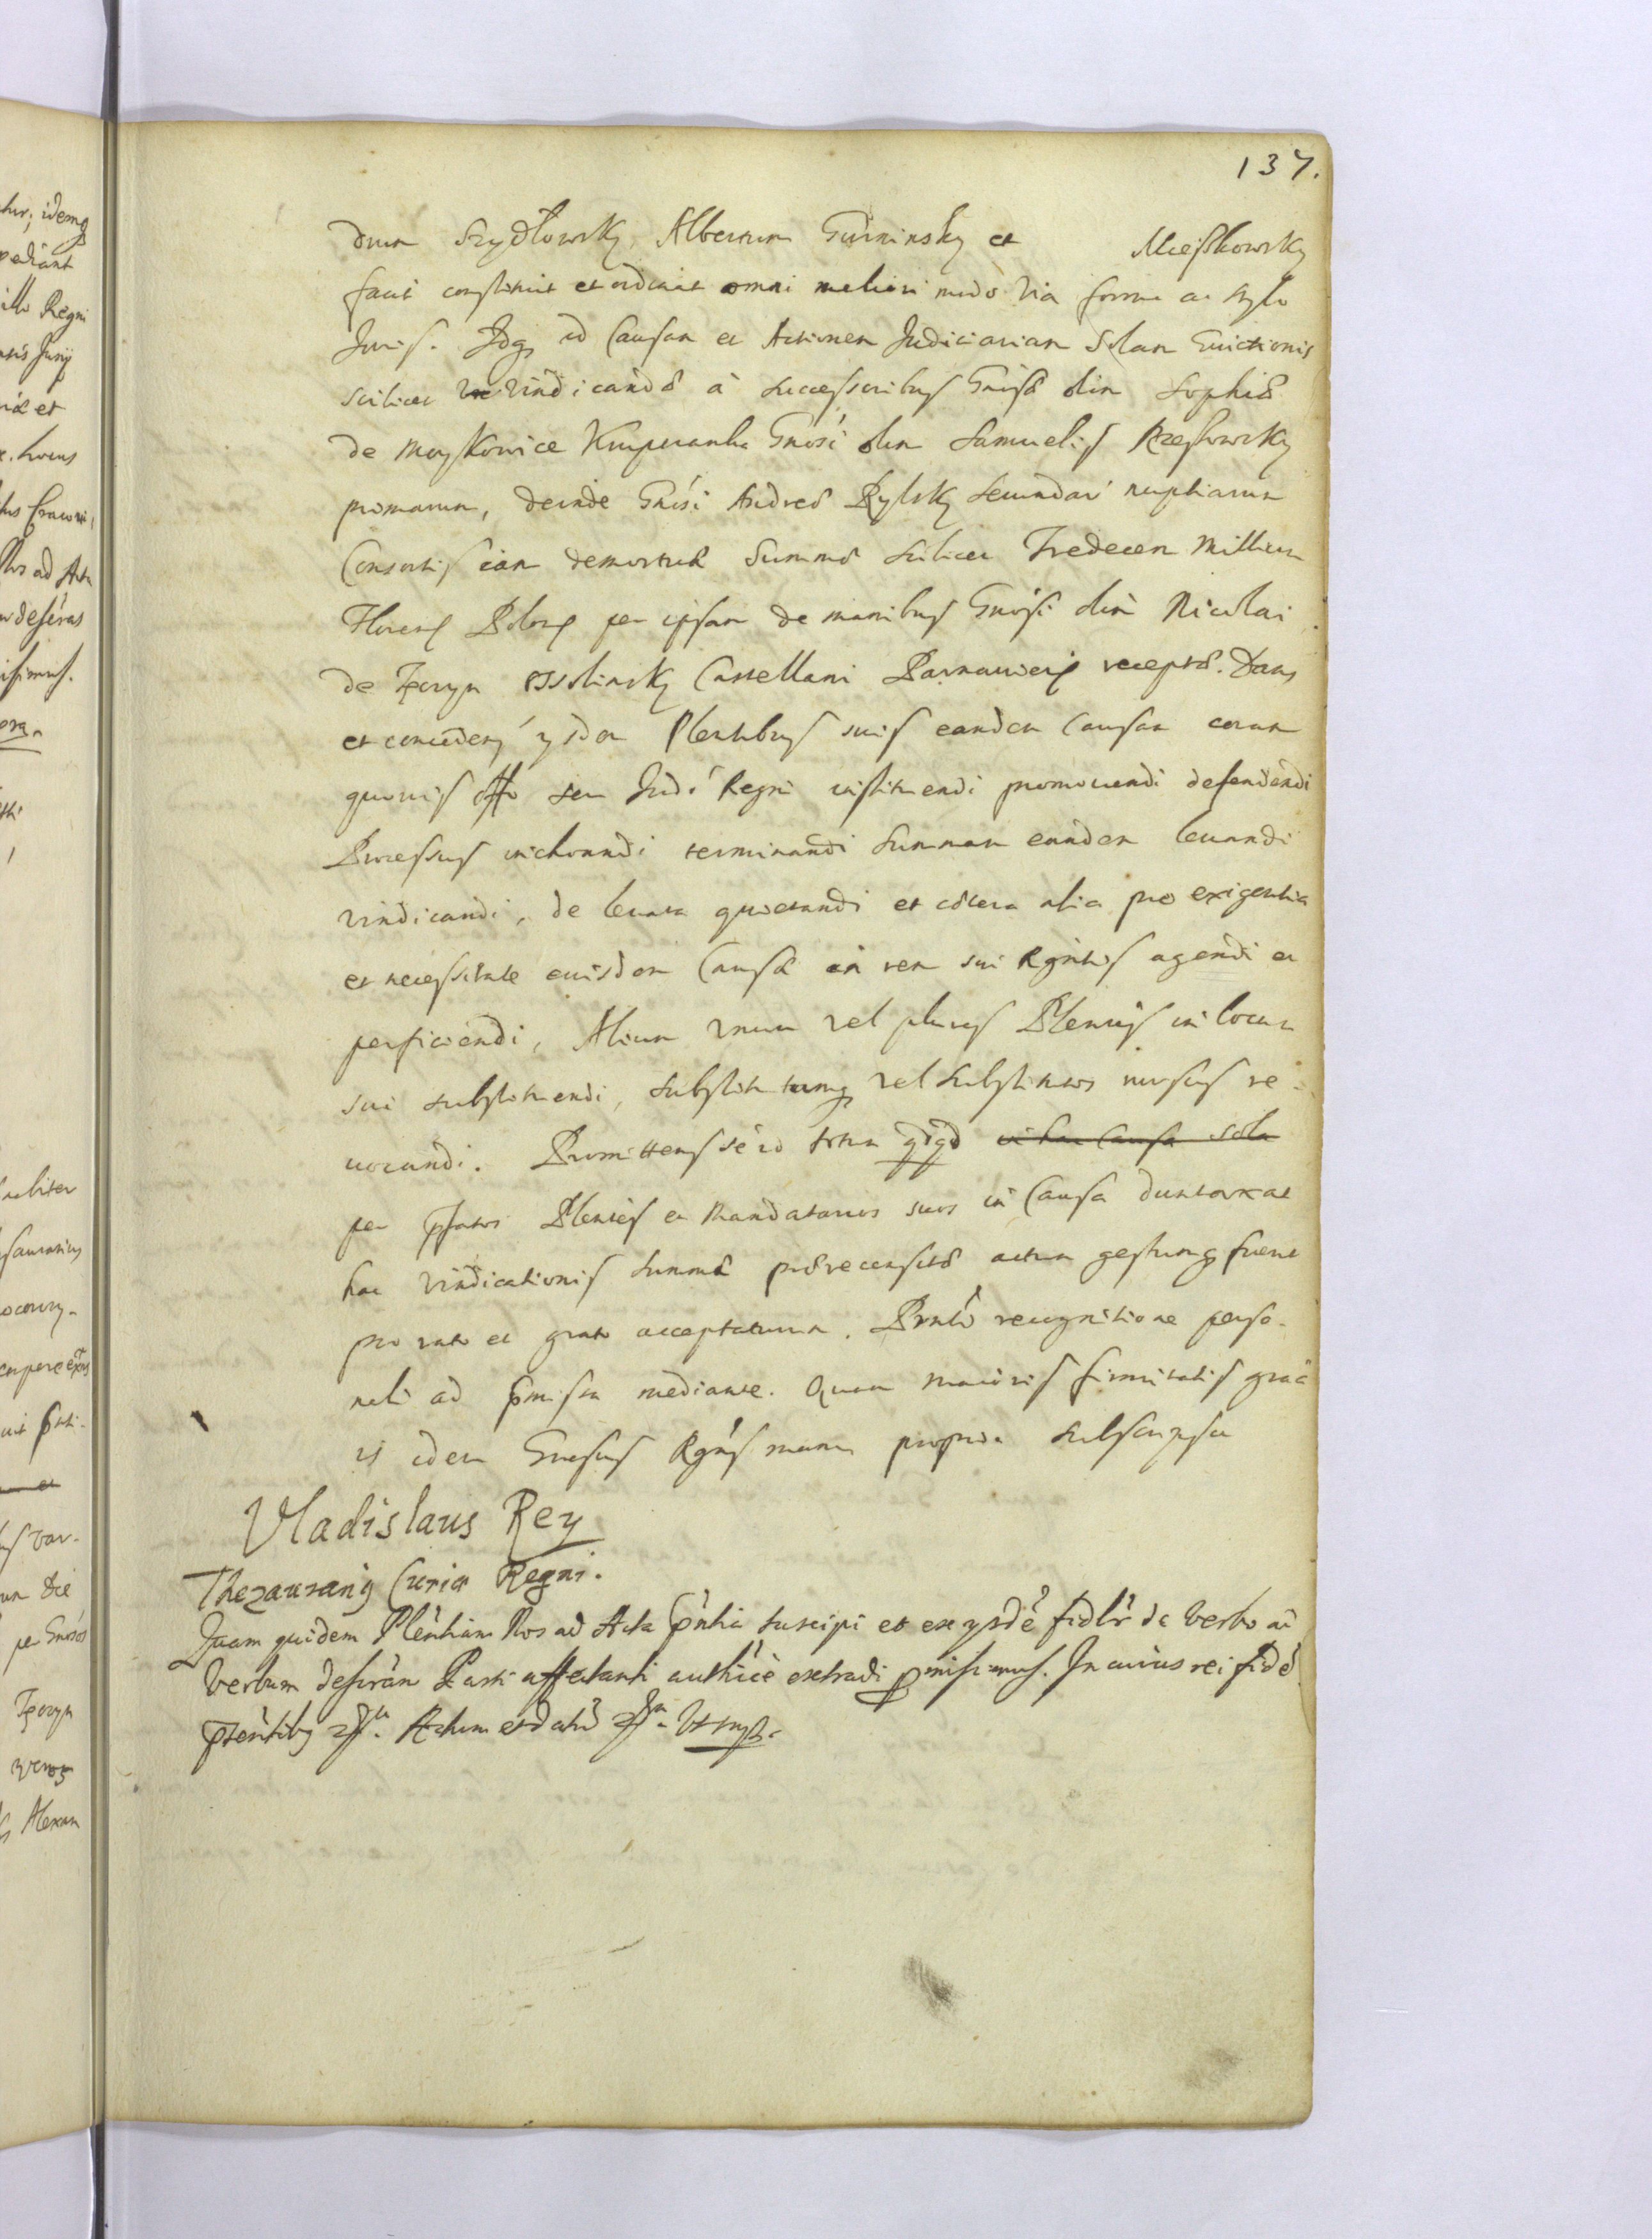 137.
drum Szydłowsky, Albertum Gurninsky et Mieszkowsky
facit constituit et ordinat omni meliori modo via forma ac stylo
Juris. Idq ad Causam et Actionem Judiciariam solam Evictionis
scilicet vindicandæ à successoribus Gnosæ olim Sophiæ
de Moyskowice Gnosi olim Samuelis Rzeszowsky
primarum, deinde Gnosi Andreæ Rylsky secundar nuptiarum
Consortis iam demortuæ Summæ scilicet Tredecem Millium
Floren Polon per ipsam de manibus Gnosi olim Nicolai
de Tęczyn Ossolinsky Castellani Parnauien receptæ. Dans
et conceden ysdem Plentibus suis eandem Causam coram
quovis Offo seu Judi Regni instituendi promovendi defendendi
Processus inchoandi terminandi Summam eandem levandi
vindicandi, de levata quietandi et cætera alia pro exigentia
et necessitate eiusdem Causæ in rem sui Rgntis agendi et
perficiendi, Alium unum vel plures Plentes in locum
sui substituendi, substitutumq vel substitutos rursus re-
vocandi. Promittens se id totum qdqd in hac Causa sola
per pfatos Plentes et Mandatarios suos in Causa duntaxat
hac vindicationis Summæ prærecensitæ actum gestumq fuerit
pro rato et grato accepturum. Pnti recognitione perso-
nali ad pmissa mediante. Quam maioris firmitatis graa
is idem Gnosus Rgns manu propria subscripsit
Vladislaus Rey
Thezaurariq Curiæ Regni.
Quam quidem Plentiam Nos ad Acta pntia suscipi et ex ysde fidlr de verbo ad
verbum descriptam Parti affectanti authce extradi pmisimus. In cuius rei fide
pesentibq Actum et datu Ut sup.